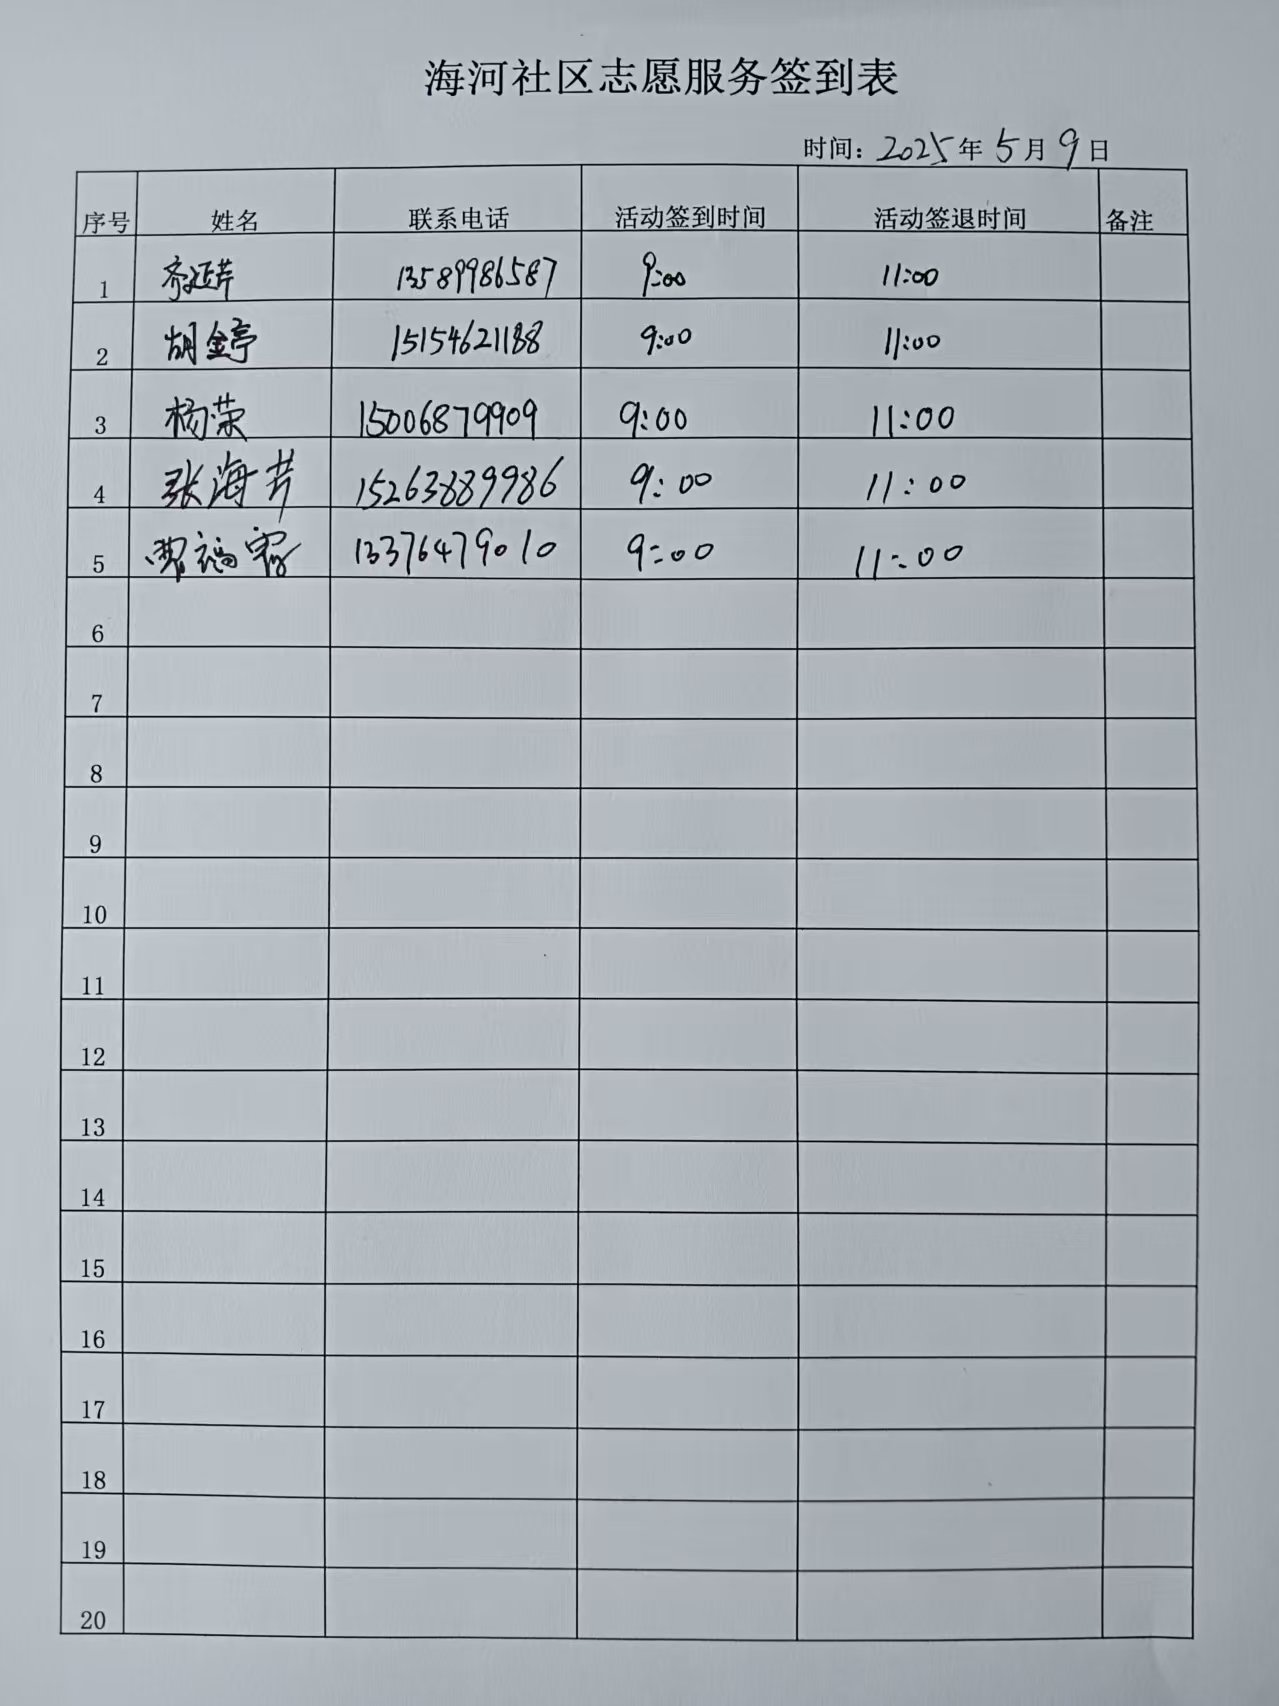 海河社区志愿服务签到表
时间：2025年5月9日
序号 姓名 联系电话 活动签到时间 活动签退时间 备注
1 13589986587 9:00 11:00
2 胡金亭 15154621188 9:00 11:00
3 杨荣 15006879909 9:00 11:00
4 张海芹 15263889986 9:00 11:00
5 13376479010 9:00 11:00
6
7
8
9
10
11
12
13
14
15
16
17
18
19
20